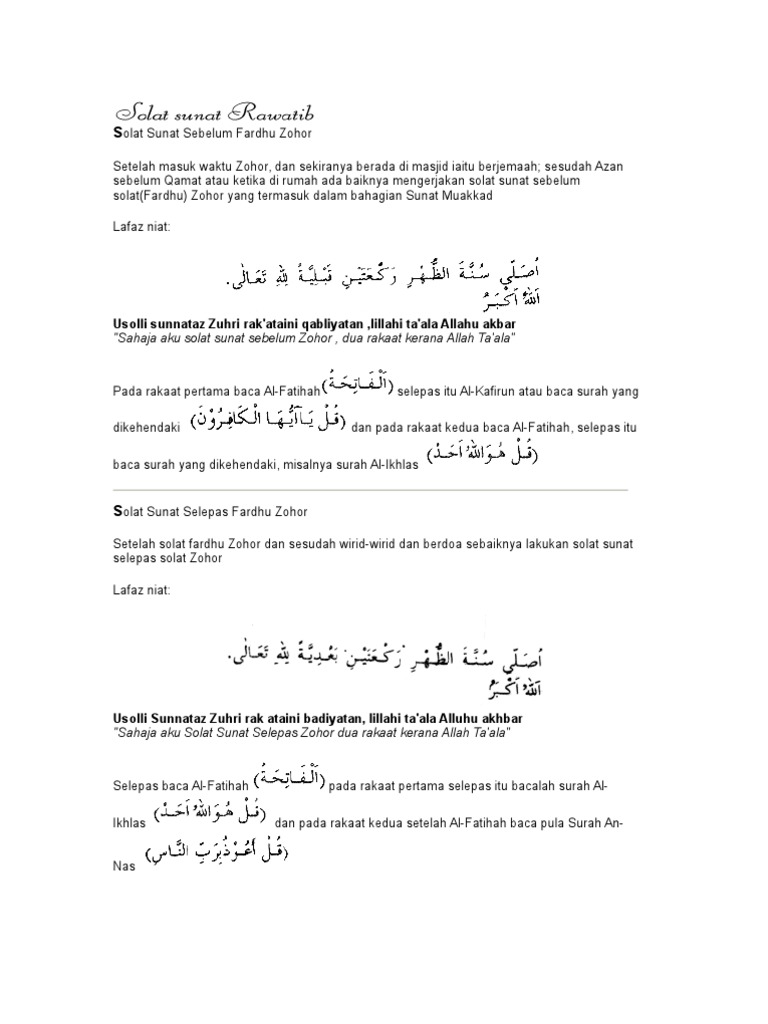 Solat sunat Rawatib
Solat Sunat Sebelum Fardhu Zohor
Setelah masuk waktu Zohor, dan sekiranya berada di masjid iaitu berjemaah; sesudah Azan
sebelum Qamat atau ketika di rumah ada baiknya mengerjakan solat sunat sebelum
solat(Fardhu) Zohor yang termasuk dalam bahagian Sunat Muakkad
Lafaz niat:
اُصَلِّي سُنَّةَ الظُّهْرِ رَكْعَتَيْنِ قَبْلِيَّةً لِلّٰهِ تَعَالٰى.
اَللهُ اَكْبَرُ
Usolli sunnataz Zuhri rak'ataini qabliyatan ,lillahi ta'ala Allahu akbar
"Sahaja aku solat sunat sebelum Zohor , dua rakaat kerana Allah Ta'ala"
Pada rakaat pertama baca Al-Fatihah (اَلْفَاتِحَةُ) selepas itu Al-Kafirun atau baca surah yang
dikehendaki (قُلْ يَآاَيُّهَا الْكَافِرُوْنَ) dan pada rakaat kedua baca Al-Fatihah, selepas itu
baca surah yang dikehendaki, misalnya surah Al-Ikhlas (قُلْ هُوَاللهُ اَحَدْ)
Solat Sunat Selepas Fardhu Zohor
Setelah solat fardhu Zohor dan sesudah wirid-wirid dan berdoa sebaiknya lakukan solat sunat
selepas solat Zohor
Lafaz niat:
اُصَلِّي سُنَّةَ الظُّهْرِ رَكْعَتَيْنِ بَعْدِيَّةً لِلّٰهِ تَعَالٰى.
اَللهُ اَكْبَرُ
Usolli Sunnataz Zuhri rak ataini badiyatan, lillahi ta'ala Alluhu akhbar
"Sahaja aku Solat Sunat Selepas Zohor dua rakaat kerana Allah Ta'ala"
Selepas baca Al-Fatihah (اَلْفَاتِحَةُ) pada rakaat pertama selepas itu bacalah surah Al-
Ikhlas (قُلْ هُوَاللهُ اَحَدْ) dan pada rakaat kedua setelah Al-Fatihah baca pula Surah An-
Nas (قُلْ أَعُوْذُبِرَبِّ النَّاسِ)